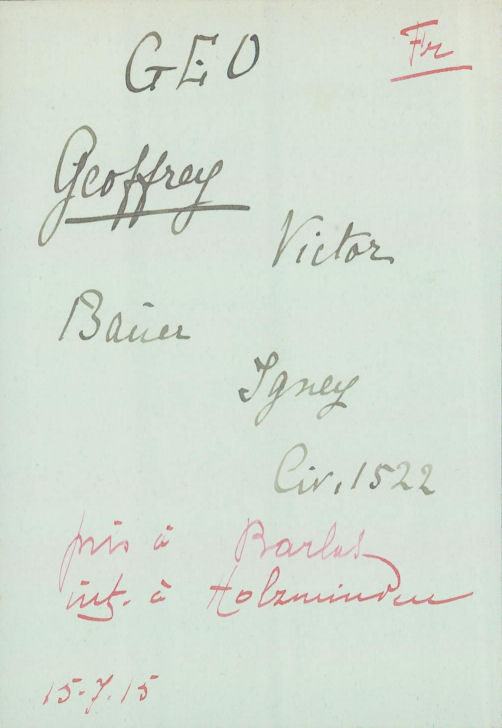 GEO
Fr
Geoffrey
Victor
Bauer
Igney
Civ. 1522
pris à Barbas
int. à Holzminden
15-7.15